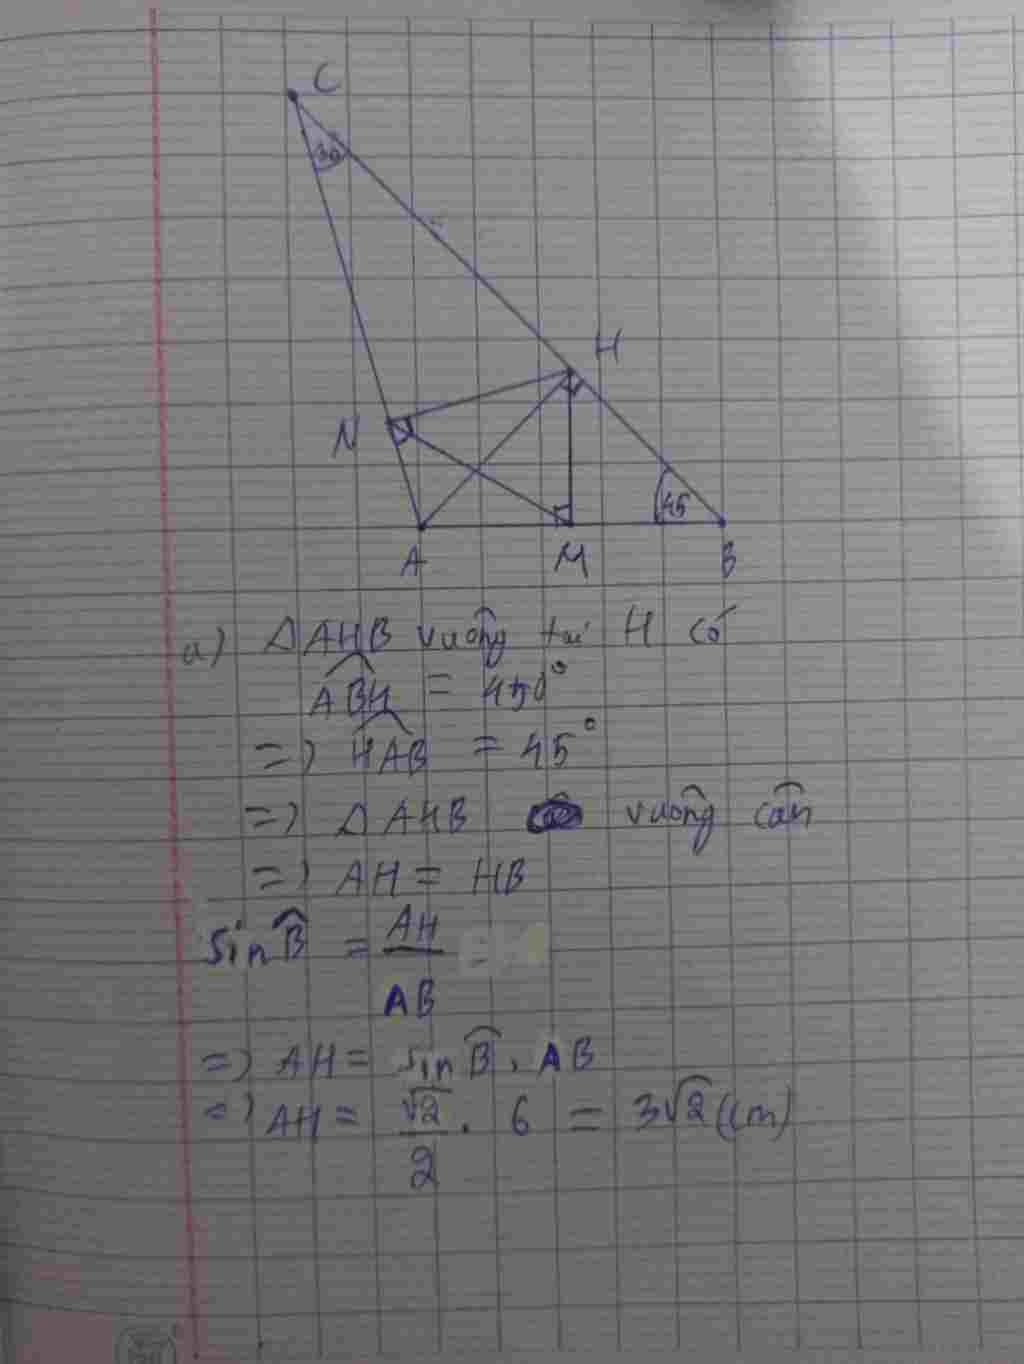 C
30
H
N
45
A M B
a) ΔAHB vuông tại H có
ABH = 450°
=) HAB = 45°
=) ΔAHB vuông cân
=) AH = HB
sin B = AH / AB
=) AH = sin B . AB
=) AH = √2 / 2 . 6 = 3√2 (cm)